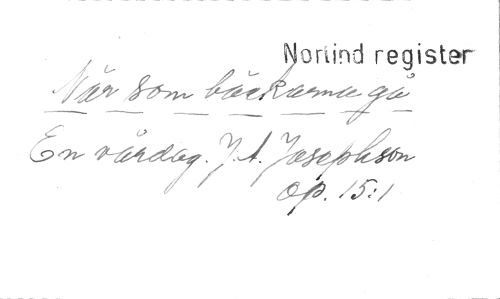 Norlind register
När som bäckarna gå
En vårdag. J. A. Josephson
op. 15:1